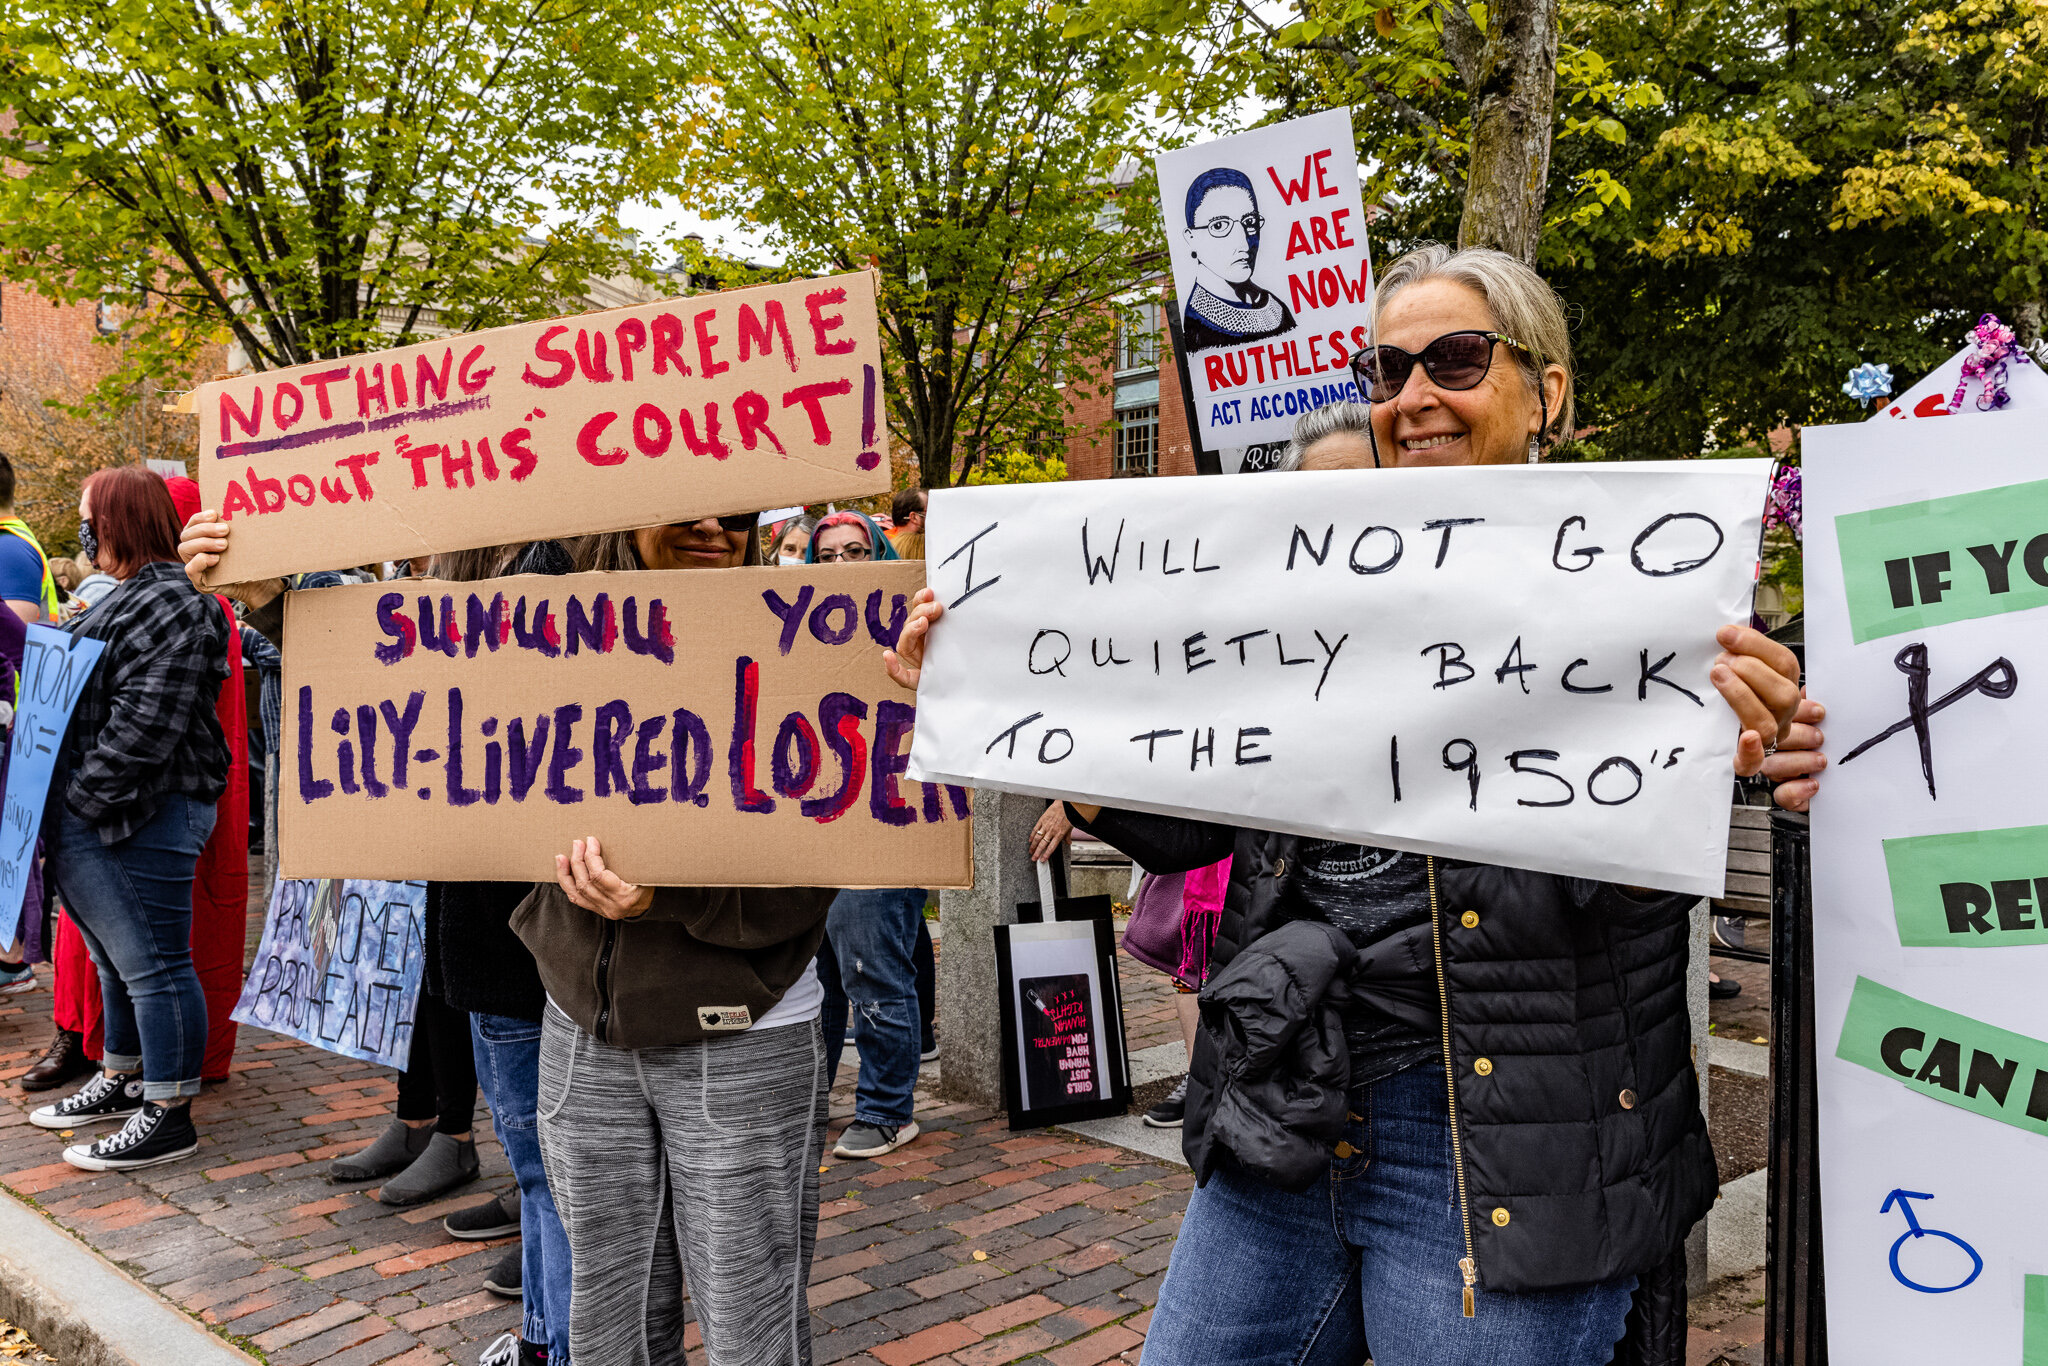 NOTHING SUPREME
ABOUT "THIS" COURT!
SUNUNU YOU
LILY-LIVERED LOSER
WE
ARE
NOW
RUTHLESS
ACT ACCORDINGL
I WILL NOT GO
QUIETLY BACK
TO THE 1950's
IF YO
CAN
PRO WOMEN
PRO HEALTH
SECURITY
GIRLS
JUST
WANNA
HAVE
FUN
HUMAN
RIGHTS